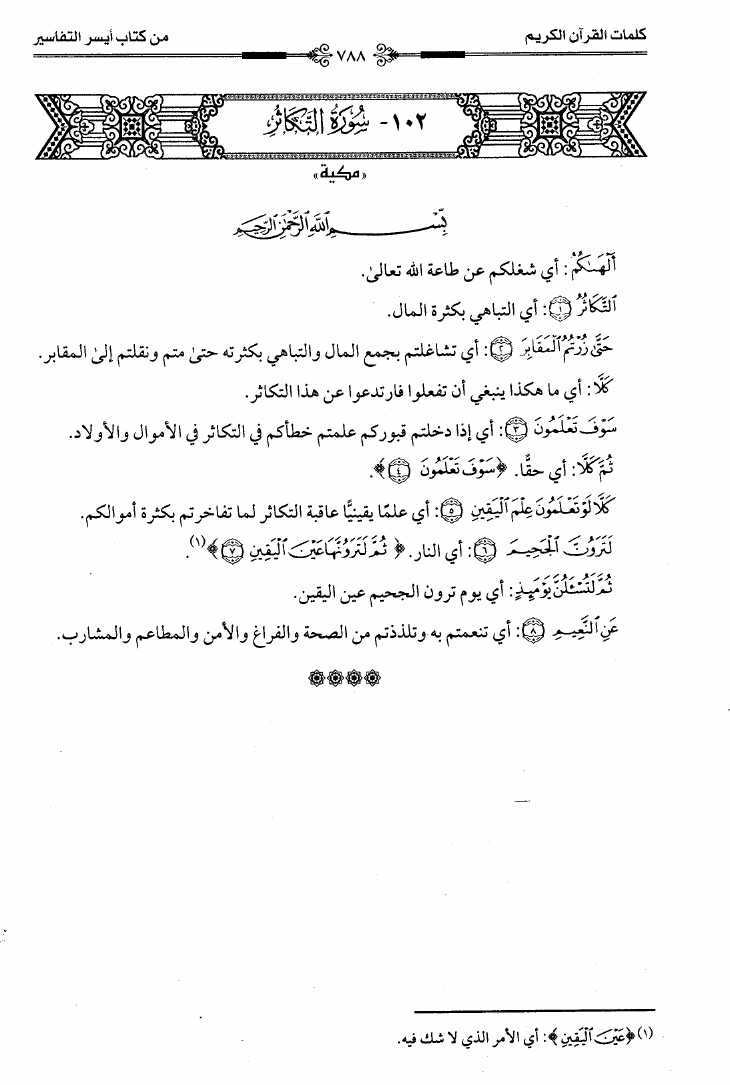 كلمات القرآن الكريم
٧٨٨
من كتاب أيسر التفاسير
١٠٢- سُورَةُ التَّكَاثُرِ
«مكية»
بِسْمِ ٱللَّهِ ٱلرَّحْمَٰنِ ٱلرَّحِيمِ
أَلْهَىٰكُمُ: أي شغلكم عن طاعة الله تعالىٰ.
ٱلتَّكَاثُرُ ﴿١﴾: أي التباهي بكثرة المال.
حَتَّىٰ زُرْتُمُ ٱلْمَقَابِرَ ﴿٢﴾: أي تشاغلتم بجمع المال والتباهي بكثرته حتىٰ متم ونقلتم إلىٰ المقابر.
كَلَّا: أي ما هكذا ينبغي أن تفعلوا فارتدعوا عن هذا التكاثر.
سَوْفَ تَعْلَمُونَ ﴿٣﴾: أي إذا دخلتم قبوركم علمتم خطأكم في التكاثر في الأموال والأولاد.
ثُمَّ كَلَّا: أي حقًّا. ﴿سَوْفَ تَعْلَمُونَ ﴿٤﴾﴾.
كَلَّا لَوْ تَعْلَمُونَ عِلْمَ ٱلْيَقِينِ ﴿٥﴾: أي علمًا يقينيًّا عاقبة التكاثر لما تفاخرتم بكثرة أموالكم.
لَتَرَوُنَّ ٱلْجَحِيمَ ﴿٦﴾: أي النار. ﴿ثُمَّ لَتَرَوُنَّهَا عَيْنَ ٱلْيَقِينِ ﴿٧﴾﴾(١).
ثُمَّ لَتُسْـَٔلُنَّ يَوْمَئِذٍ: أي يوم ترون الجحيم عين اليقين.
عَنِ ٱلنَّعِيمِ ﴿٨﴾: أي تنعمتم به وتلذذتم من الصحة والفراغ والأمن والمطاعم والمشارب.
(١) ﴿عَيْنَ ٱلْيَقِينِ﴾: أي الأمر الذي لا شك فيه.